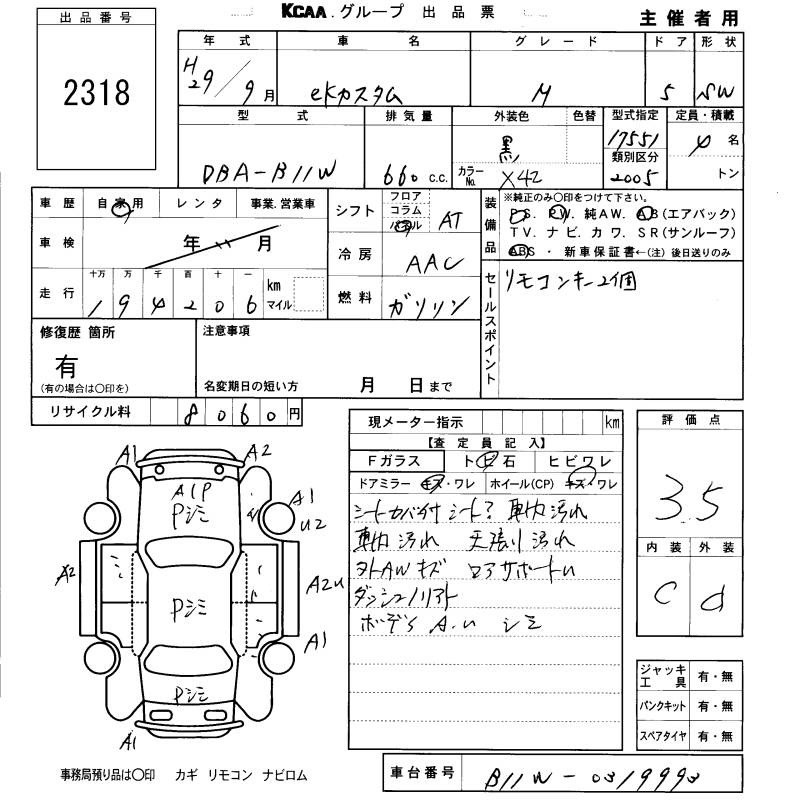 出品番号
2318
KCAA.グループ 出品票
主催者用
年式 車名 グレード ドア 形状
H29/9月 eKカスタム M 5 SW
型式 排気量 外装色 色替 型式指定 定員・積載
DBA-B11W 660 c.c. 黒 17551 4名
カラーNo. X42 類別区分 2005 トン
車歴 自家用 レンタ 事業.営業車
車検 年 月
走行 十万 万 千 百 十 一
194206 km マイル
シフト フロア コラム パネル AT
冷房 AAC
燃料 ガソリン
装備品
※純正のみ〇印をつけて下さい。
P S. P W. 純AW. A B(エアバック)
TV. ナビ. カワ. SR(サンルーフ)
ABS ・ 新車保証書←(注) 後日送りのみ
セールスポイント
リモコンキー2個
修復歴 箇所
有
(有の場合は〇印を)
注意事項
名変期日の短い方 月 日まで
リサイクル料 8060円
現メーター指示 km
【査定員記入】
Fガラス ト ビ 石 ヒビワレ
ドアミラー キズ・ワレ ホイール(CP) キズ・ワレ
シートカバー付 シート? 車内汚れ
車内汚れ 天張り汚れ
ヨトAWキズ ロアサポートU
ダッシュノリアト
ボデーS A.U シミ
評価点
3.5
内装 外装
C d
ジャッキ工具 有・無
パンクキット 有・無
スペアタイヤ 有・無
A1 A2
A1P
Pシミ
A1
U2
A2
Pシミ
A2U
A1
Pシミ
A1
事務局預り品は〇印 カギ リモコン ナビロム
車台番号 B11W-0319993